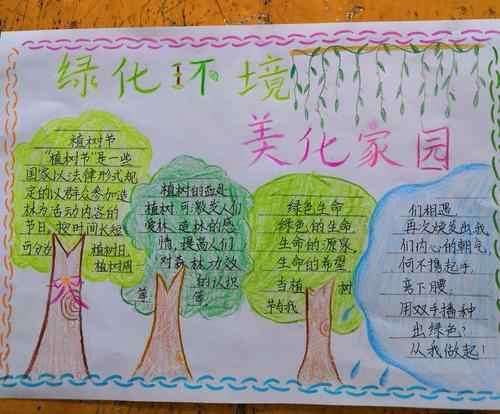 绿化环境
美化家园
植树节
"植树节"是一些
国家以法律形式规
定的以群众参加造
林为活动内容的
节日。按时间长短
可分为 植树日、
植树周
植树的益处
植树可激发人们
爱林、造林的感
情、提高人们
对森林功效
的认识
等 等
绿色生命
绿色的生命,
生命的源泉,
生命的希望
当植 树
节与我
们相遇,
再次焕发出我
们内心的朝气,
何不携起手,
弯下腰,
用双手播种
出绿色?
从我做起!